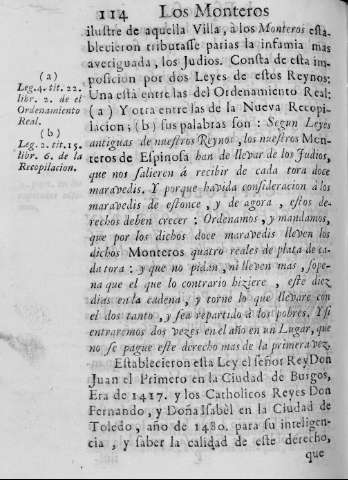 114 Los Monteros
ilustre de aquella Villa, à los Monteros esta-
blecieron tributasse parias la infamia mas
averiguada, los Judios. Consta de esta im-
posicion por dos Leyes de estos Reynos:
Una està entre las del Ordenamiento Real:
(a) Y otra entre las de la Nueva Recopi-
lacion; (b) sus palabras son: Segun Leyes
antiguas de nuestros Reynos, los nuestros Mon-
teros de Espinosa han de llevar de los Judios,
que nos salieren à recibir de cada tora doce
maravedis. Y porque havida consideracion à los
maravedis de estonce, y de agora, estos de-
rechos deben crecer: Ordenamos, y mandamos,
que por los dichos doce maravedis lleven los
dichos Monteros quatro reales de plata de ca-
da tora: y que no pidan, ni lleven mas, sope-
na que el que lo contrario hiziere, este diez
dias en la cadena, y torne lo que llevare con
el dos tanto, y sea repartido à los pobres. Y si
entraremos dos vezes en el año en un Lugar, que
no se pague este derecho mas de la primera vez.
Establecieron esta Ley el señor Rey Don
Juan el Primero en la Ciudad de Burgos,
Era de 1417. y los Catholicos Reyes Don
Fernando, y Doña Isabèl en la Ciudad de
Toledo, año de 1480. para su inteligen-
cia, y saber la calidad de este derecho,
que
(a)
Leg. 4. tit. 22.
libr. 2. de el
Ordenamiento
Real.
(b)
Leg. 2. tit. 15.
libr. 6. de la
Recopilacion.